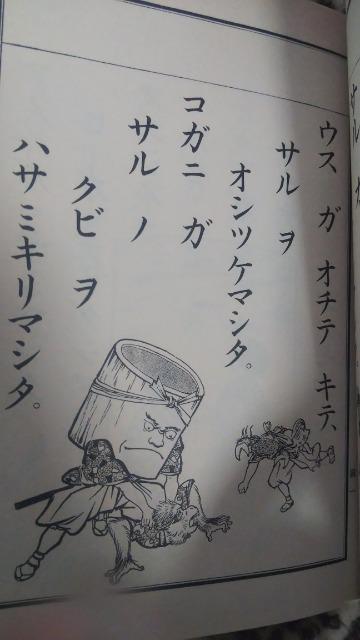 ウス ガ オチテ キテ、
サル ヲ
オシツケマシタ。
コガニ ガ
サル ノ
クビ ヲ
ハサミキリマシタ。